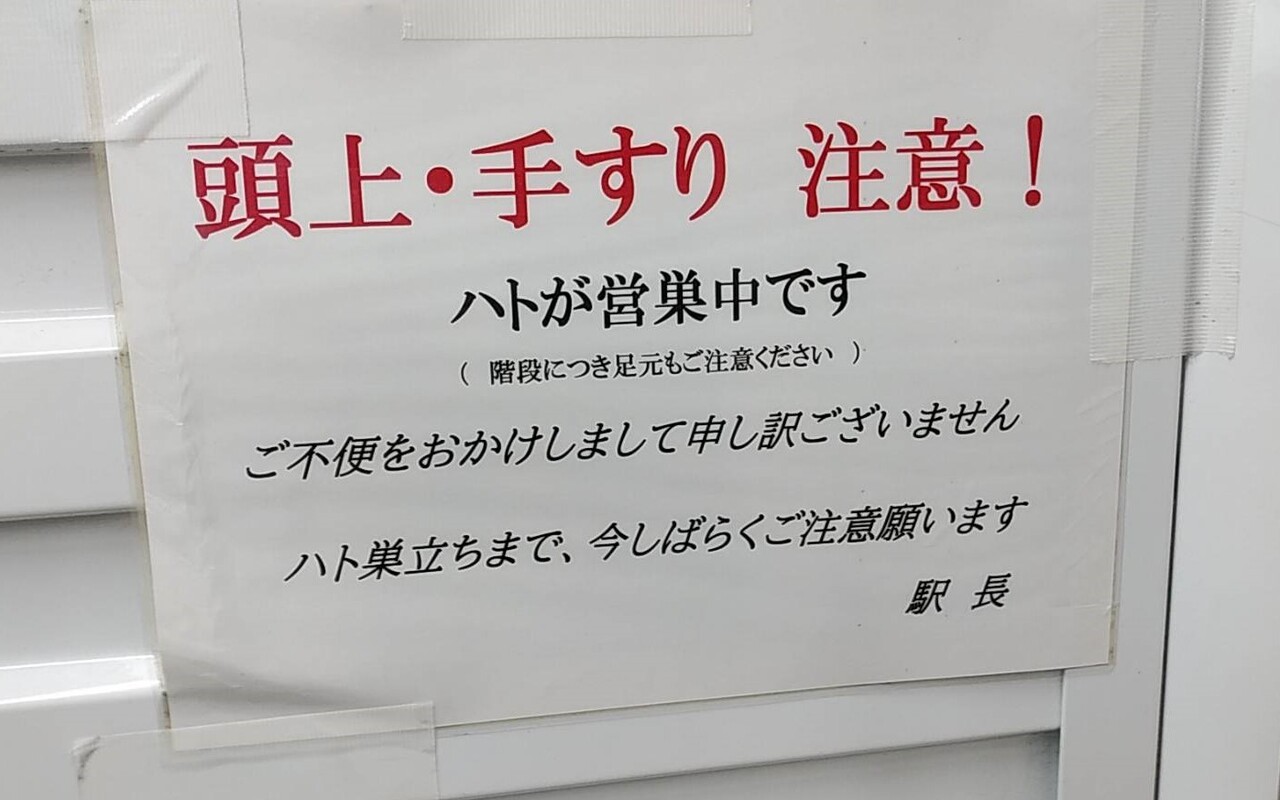 頭上・手すり 注意！
ハトが営巣中です
（ 階段につき足元もご注意ください ）
ご不便をおかけしまして申し訳ございません
ハト巣立ちまで、今しばらくご注意願います
駅 長